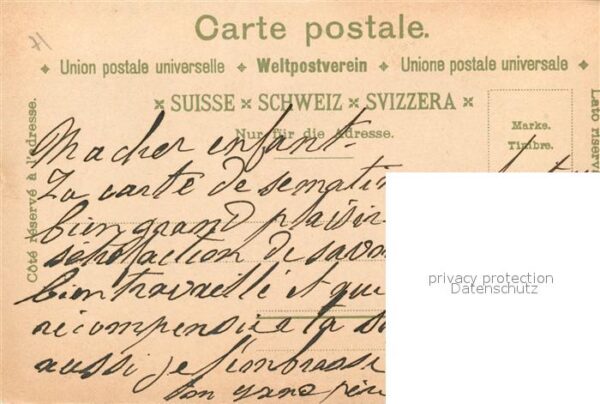 Carte postale.
Union postale universelle Weltpostverein Unione postale universale
SUISSE SCHWEIZ SVIZZERA
Nur für die Adresse.
Marke.
Timbre.
Côté réservé à l'adresse.
Lato riserva
Ma cher enfant.
La carte de se matin
bien grand plaisir
sétisfaction de savoi
bien travaillé et que
récompensée ta
aussi je t'embrasse
ton grand père
privacy protection
Datenschutz